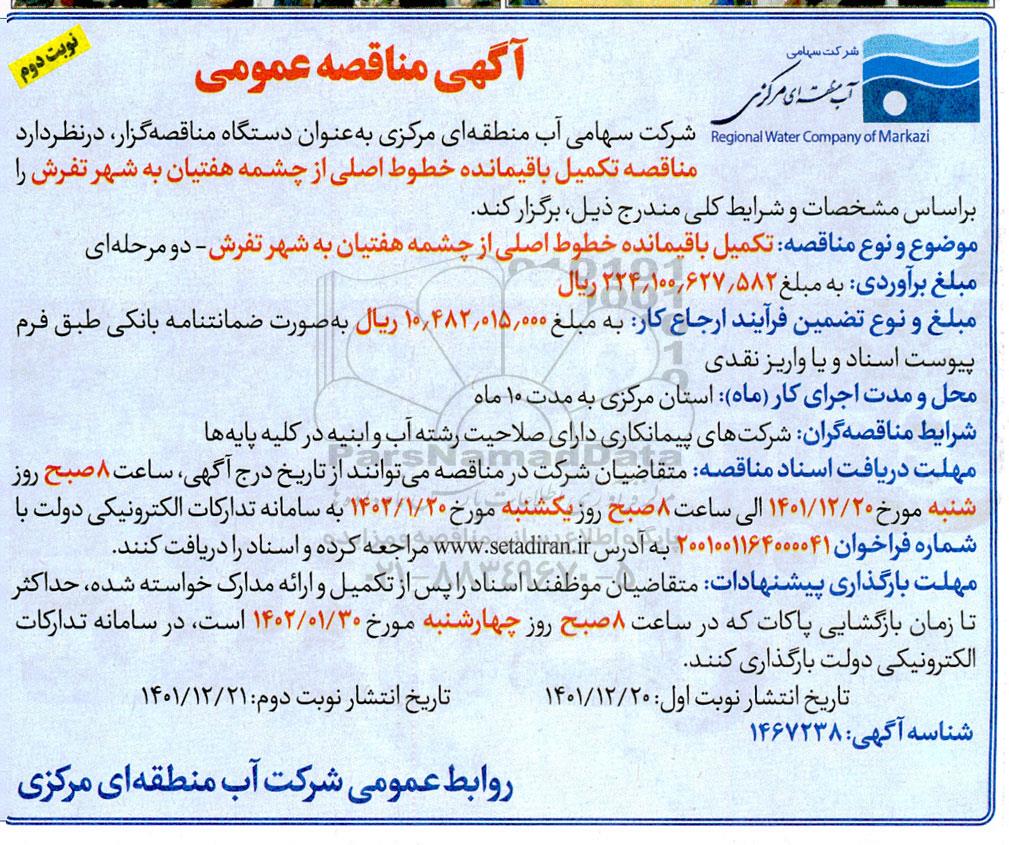 نوبت دوم
آگهی مناقصه عمومی
شرکت سهامی
آب منطقه‌ای مرکزی
Regional Water Company of Markazi
شرکت سهامی آب منطقه‌ای مرکزی به‌عنوان دستگاه مناقصه‌گزار، درنظردارد
مناقصه تکمیل باقیمانده خطوط اصلی از چشمه هفتیان به شهر تفرش را
براساس مشخصات و شرایط کلی مندرج ذیل، برگزار کند.
موضوع و نوع مناقصه: تکمیل باقیمانده خطوط اصلی از چشمه هفتیان به شهر تفرش- دو مرحله‌ای
مبلغ برآوردی: به مبلغ ۲۲۴,۱۰۰,۶۲۷,۵۸۲ ریال
مبلغ و نوع تضمین فرآیند ارجاع کار: به مبلغ ۱۰,۴۸۲,۰۱۵,۰۰۰ ریال به‌صورت ضمانتنامه بانکی طبق فرم
پیوست اسناد و یا واریز نقدی
محل و مدت اجرای کار (ماه): استان مرکزی به مدت ۱۰ ماه
شرایط مناقصه‌گران: شرکت‌های پیمانکاری دارای صلاحیت رشته آب و ابنیه در کلیه پایه‌ها
مهلت دریافت اسناد مناقصه: متقاضیان شرکت در مناقصه می‌توانند از تاریخ درج آگهی، ساعت ۸ صبح روز
شنبه مورخ ۱۴۰۱/۱۲/۲۰ الی ساعت ۸ صبح روز یکشنبه مورخ ۱۴۰۲/۱/۲۰ به سامانه تدارکات الکترونیکی دولت با
شماره فراخوان ۲۰۰۱۰۰۱۱۶۴۰۰۰۰۴۱ به آدرس www.setadiran.ir مراجعه کرده و اسناد را دریافت کنند.
مهلت بارگذاری پیشنهادات: متقاضیان موظفند اسناد را پس از تکمیل و ارائه مدارک خواسته شده، حداکثر
تا زمان بازگشایی پاکات که در ساعت ۸ صبح روز چهارشنبه مورخ ۱۴۰۲/۰۱/۳۰ است، در سامانه تدارکات
الکترونیکی دولت بارگذاری کنند.
تاریخ انتشار نوبت اول: ۱۴۰۱/۱۲/۲۰ تاریخ انتشار نوبت دوم: ۱۴۰۱/۱۲/۲۱
شناسه آگهی: ۱۴۶۷۲۳۸
روابط عمومی شرکت آب منطقه‌ای مرکزی
ParsNamadData
پایگاه اطلاع رسانی مناقصه و مزایده
۰۲۱-۸۸۳۴۹۶۷۰-۵